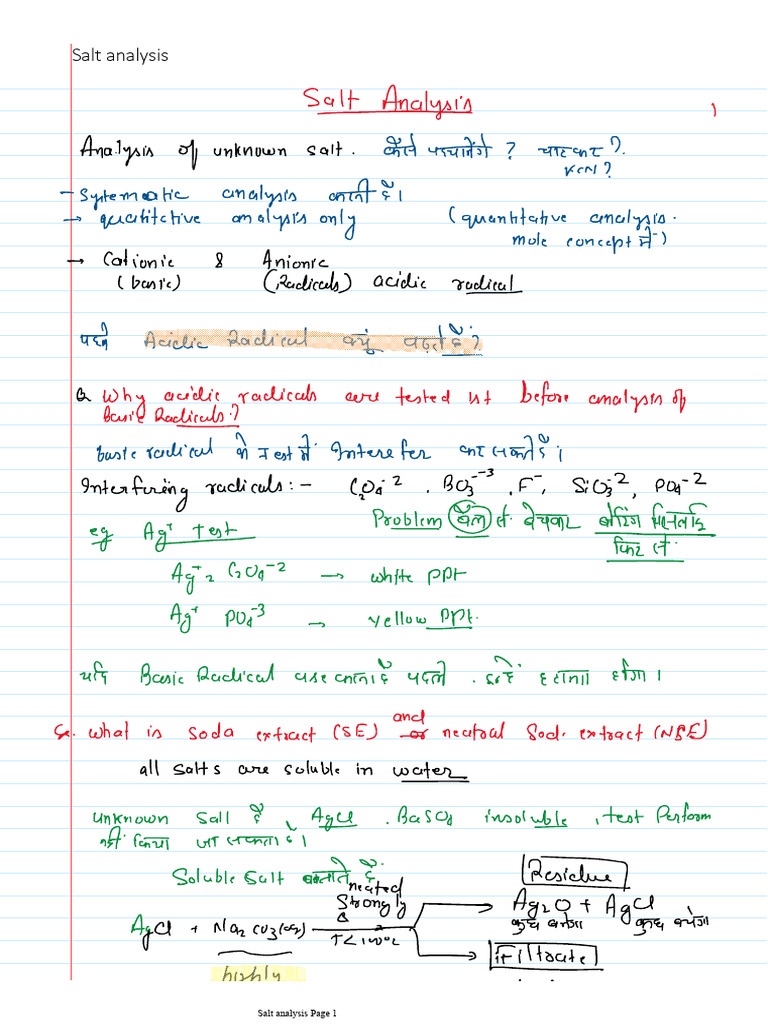 Salt analysis
Salt Analysis
1
Analysis of unknown salt. कैसे पहचानेंगे ? चाटकार ?
KCN ?
- Systematic analysis करनी है।
→ qualitative analysis only (quantitative analysis.
mole concept में)
→ Cationic & Anionic
(basic) (Radicals) acidic radical
पहले Acidic Radical क्यूं पढ़ते हैं ?
Q Why acidic radicals are tested 1st before analysis of
basic Radicals ?
basic radical के Test में Interefer कर सकते हैं।
Interfering radicals :- C2O4-2 , BO3-3 , F-, SiO3-2, PO4-2
Problem बैल से बेचकर
eg Ag+ Test
फिर से
Ag+2 C2O4-2 → white ppt
Ag+ PO4-3 → yellow ppt.
यदि Basic Radical पहले , इन्हें हटाना होगा।
Q. What is soda extract (SE) and or neutral Sod. extract (NSE)
all salts are soluble in water
unknown Sall है AgCl , BaSO4 insoluble , test Perform
नहीं किया जा सकता है।
Soluble Salt बनाते हैं
Residue
heated
Strongly
Δ
Ag2O + AgCl
AgCl + Na2CO3(aq)
T<100°C
कुछ बनेगा कुछ बचेगा
Filtrate
highly
Salt analysis Page 1